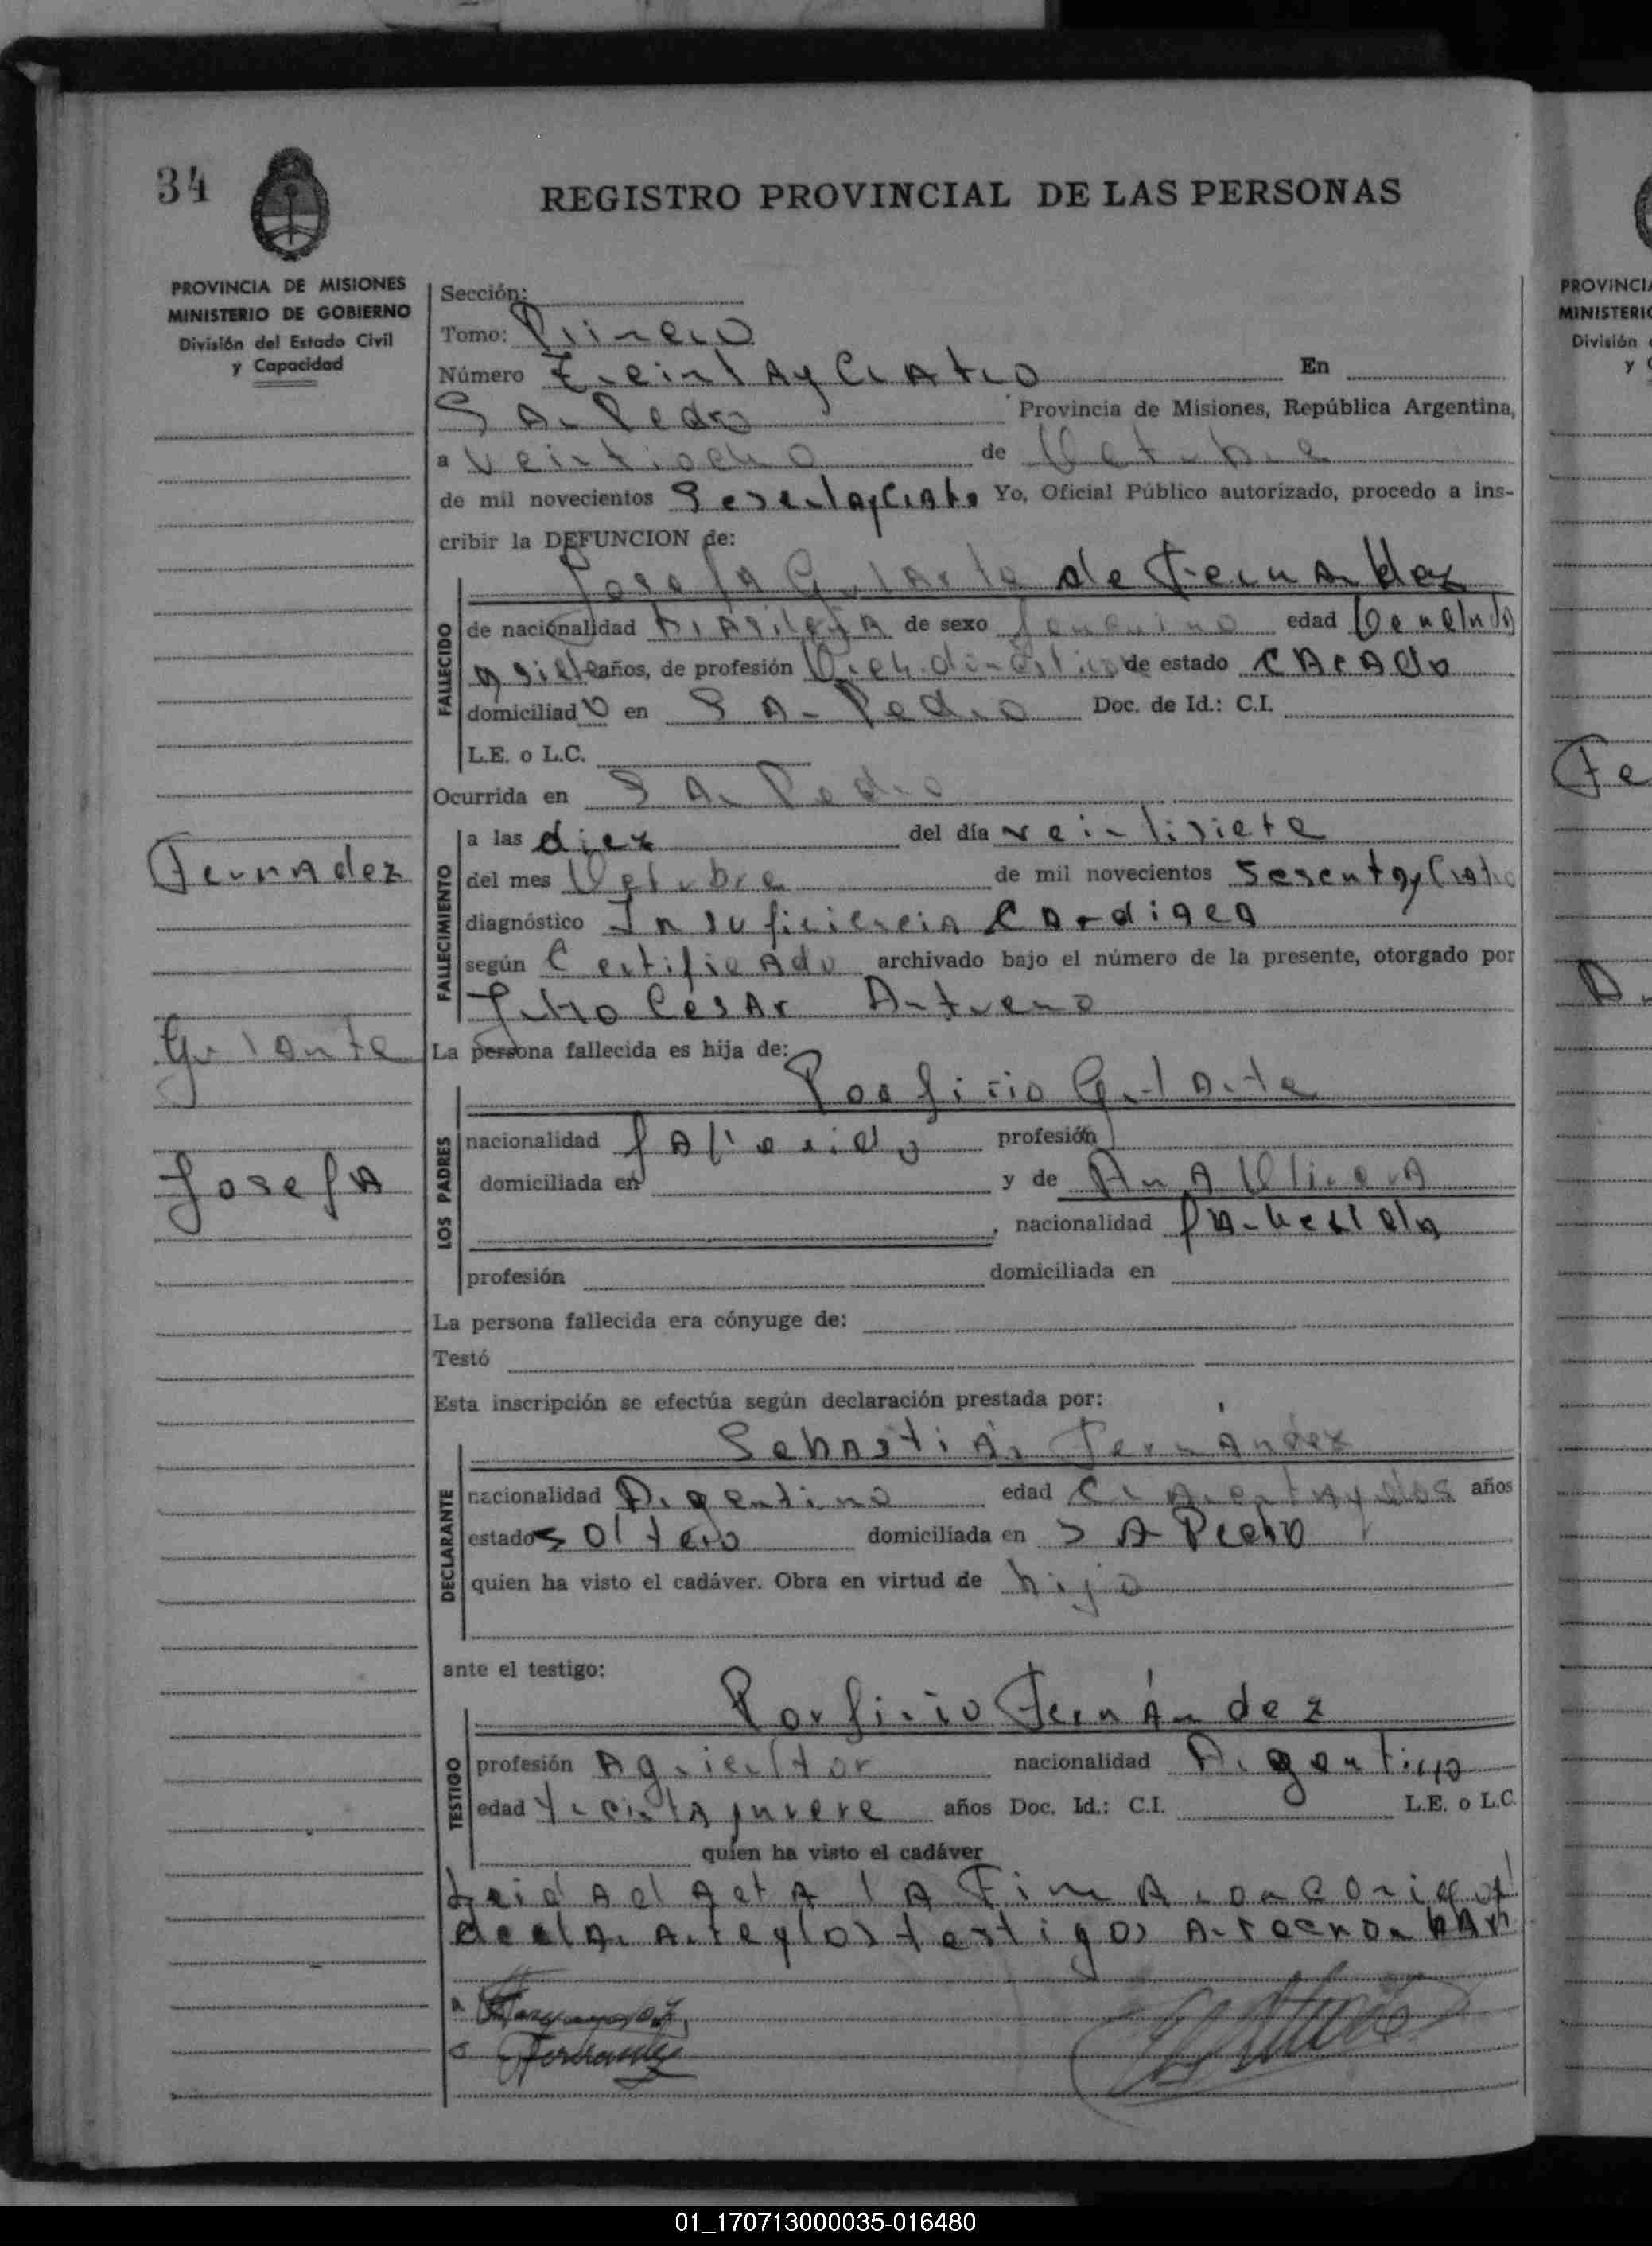 34
REGISTRO PROVINCIAL DE LAS PERSONAS
PROVINCIA DE MISIONES
MINISTERIO DE GOBIERNO
División del Estado Civil
y Capacidad
Sección:
Tomo: Primero
Número Treinta y Cuatro En
San Pedro Provincia de Misiones, República Argentina,
a Veintiocho de Octubre
de mil novecientos Sesenta y Cuatro Yo, Oficial Público autorizado, procedo a ins-
cribir la DEFUNCION de:
Josefa Gularte de Fernandez
FALLECIDO
de nacionalidad brasileña de sexo femenino edad
y siete años, de profesión de estado casado
domiciliado en San Pedro Doc. de Id.: C.I.
L.E. o L.C.
Ocurrida en San Pedro
FALLECIMIENTO
a las diez del día veintisiete
del mes Octubre de mil novecientos Sesenta y Cuatro
diagnóstico Insuficiencia Cardiaca
según Certificado archivado bajo el número de la presente, otorgado por
Julio César
Fernadez
Gularte
Josefa
La persona fallecida es hija de:
Porfirio Gularte
LOS PADRES
nacionalidad fallecido profesión
domiciliada en y de Ana Olivera
, nacionalidad
profesión domiciliada en
La persona fallecida era cónyuge de:
Testó
Esta inscripción se efectúa según declaración prestada por:
Sebastián Fernandez
DECLARANTE
nacionalidad Argentino edad Cuarenta y dos años
estado soltero domiciliada en San Pedro
quien ha visto el cadáver. Obra en virtud de hijo
ante el testigo:
Porfirio Fernández
TESTIGO
profesión Agricultor nacionalidad Argentino
edad treinta y nueve años Doc. Id.: C.I. L.E. o L.C.
quien ha visto el cadáver
Leida el acta la firman conmigo el
declarante y los testigos
Fernandez
PROVINCIA
MINISTERIO
División
y
Fe
01_170713000035-016480